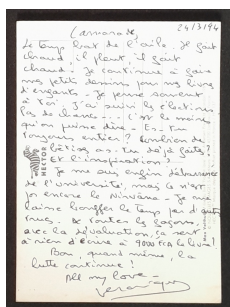 24/3/94
Camarade,
Le temps bat de l'aile. Il fait
chaud, il pleut, il fait
chaud. Je continue à faire
mes petits dessins pour mes livres
d'enfants. Je pense souvent
à toi. J'ai suivi les élections
Pas de chance... c'est le moins
qu'on puisse dire. Es-tu
toujours entier? Combien de
bêtises as-tu déjà faites?
Et l'inspiration?
Je me suis enfin débarrassée
de l'université, mais ce n'est
pas encore le Nirvana. Je me
laisse bouffer le temps par d'autres
trucs. De toutes les façons,
avec la dévaluation, ça sert
à rien d'écrire à 9000 F le livre!
Bon, quand même, la
lutte continue!
All my love -
Véronique
HECTOR